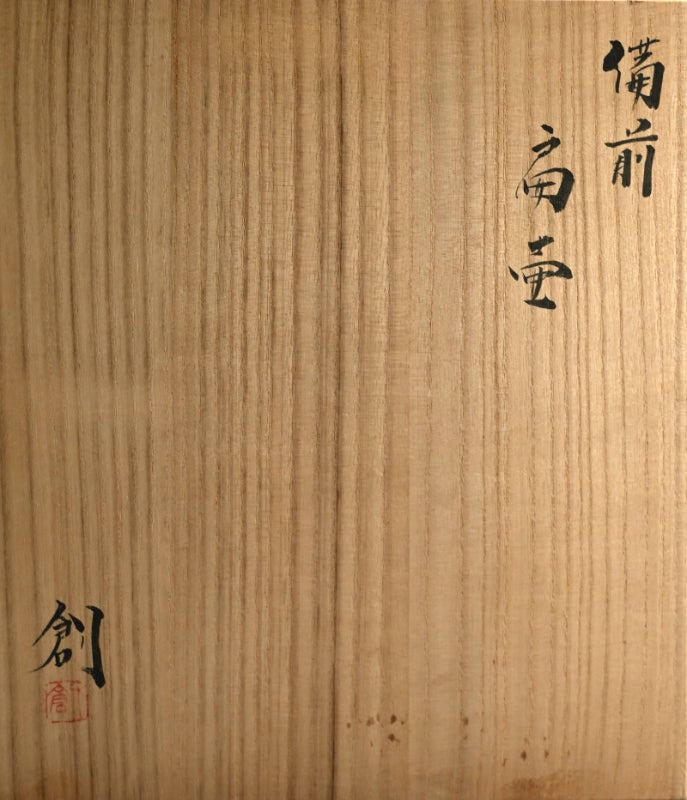 備前
扁壷
創
創